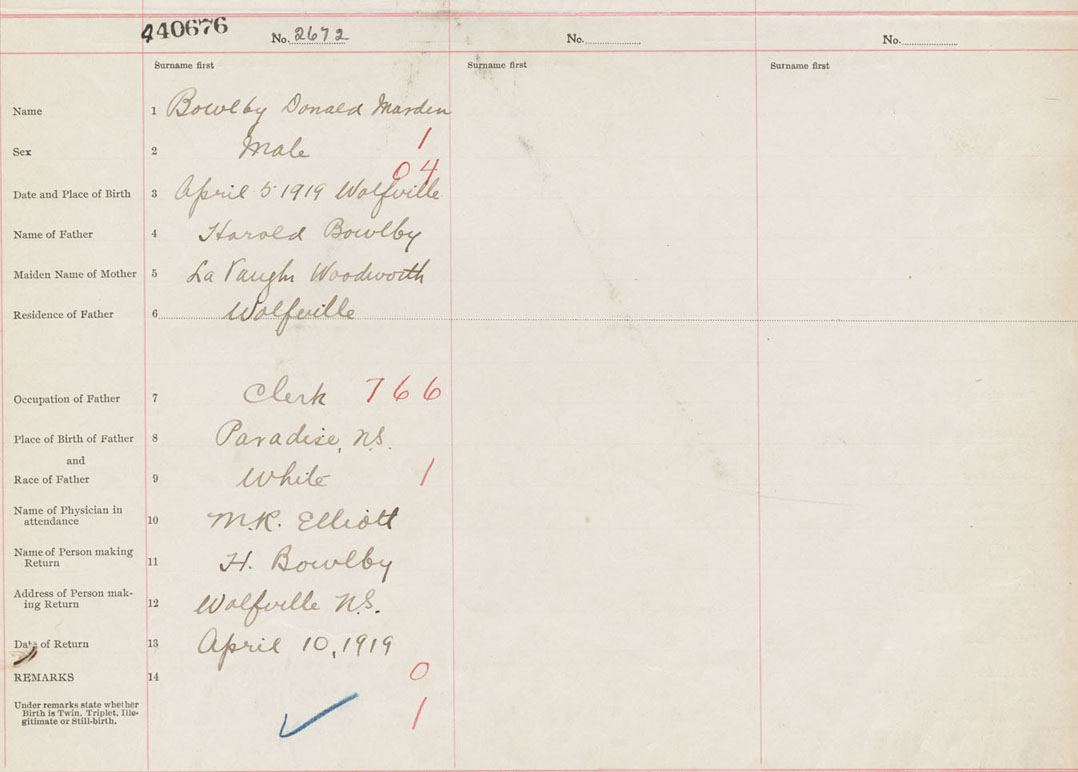 440676 No. 2672 No. No.
Surname first Surname first Surname first
Name 1 Bowlby Donald Marden
Sex 2 Male 1
04
Date and Place of Birth 3 April 5 1919 Wolfville
Name of Father 4 Harold Bowlby
Maiden Name of Mother 5 La Vaughn Woodworth
Residence of Father 6 Wolfville
Occupation of Father 7 Clerk 766
Place of Birth of Father 8 Paradise, N.S.
and
Race of Father 9 White 1
Name of Physician in
attendance 10 M.R. Elliott
Name of Person making
Return 11 H. Bowlby
Address of Person mak-
ing Return 12 Wolfville N.S.
Date of Return 13 April 10, 1919
REMARKS 14 0
Under remarks state whether
Birth is Twin, Triplet, Ille-
gitimate or Still-birth. 1